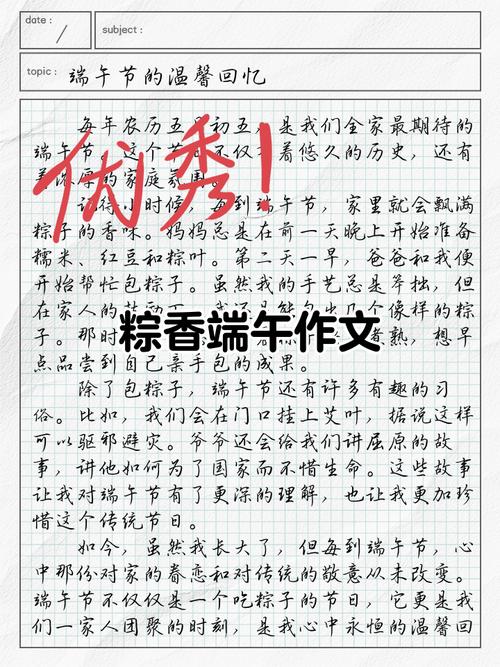 date :
subject :
topic : 端午节的温馨回忆
每年农历五月初五，是我们全家最期待的
端午节。这个节日不仅有着悠久的历史，还有
着浓厚的家庭氛围。
优秀！
记得小时候，每到端午节，家里就会飘满
粽子的香味。妈妈总是在前一天晚上开始准备
糯米、红豆和粽叶。第二天一早，爸爸和我便
开始帮忙包粽子。虽然我的手艺总是笨拙，但
在家人的
个像样的粽
粽香端午作文
子。那时
者熟，想早
点品尝到自己亲手包的成果。
除了包粽子，端午节还有许多有趣的习
俗。比如，我们会在门口挂上艾叶，据说这样
可以驱邪避灾。爷爷还会给我们讲屈原的故
事，讲他如何为了国家而不惜生命。这些故事
让我对端午节有了更深的理解，也让我更加珍
惜这个传统节日。
如今，虽然我长大了，但每到端午节，心
中那份对家的眷恋和对传统的敬意从未改变。
端午节不仅仅是一个吃粽子的节日，它更是我
们一家人团聚的时刻，是我心中永恒的温馨回